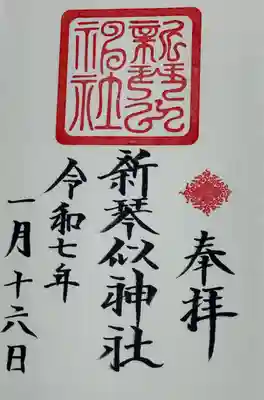 奉拝
新琴似神社
令和七年
一月十六日
新琴似
神社